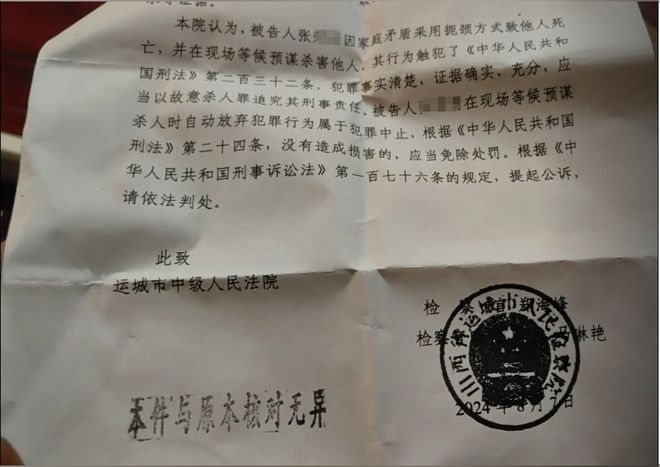 本院认为，被告人张 因家庭矛盾采用扼颈方式致他人死
亡，并在现场等候预谋杀害他人，其行为触犯了《中华人民共和
国刑法》第二百三十二条，犯罪事实清楚，证据确实、充分，应
当以故意杀人罪追究其刑事责任。被告人 在现场等候预谋
杀人时自动放弃犯罪行为属于犯罪中止，根据《中华人民共和国
刑法》第二十四条，没有造成损害的，应当免除处罚。根据《中
华人民共和国刑事诉讼法》第一百七十六条的规定，提起公诉，
请依法判处。
此致
运城市中级人民法院
检
检察 琳艳
山西省运城市人民检察院
2024年8月7日
本件与原本核对无异